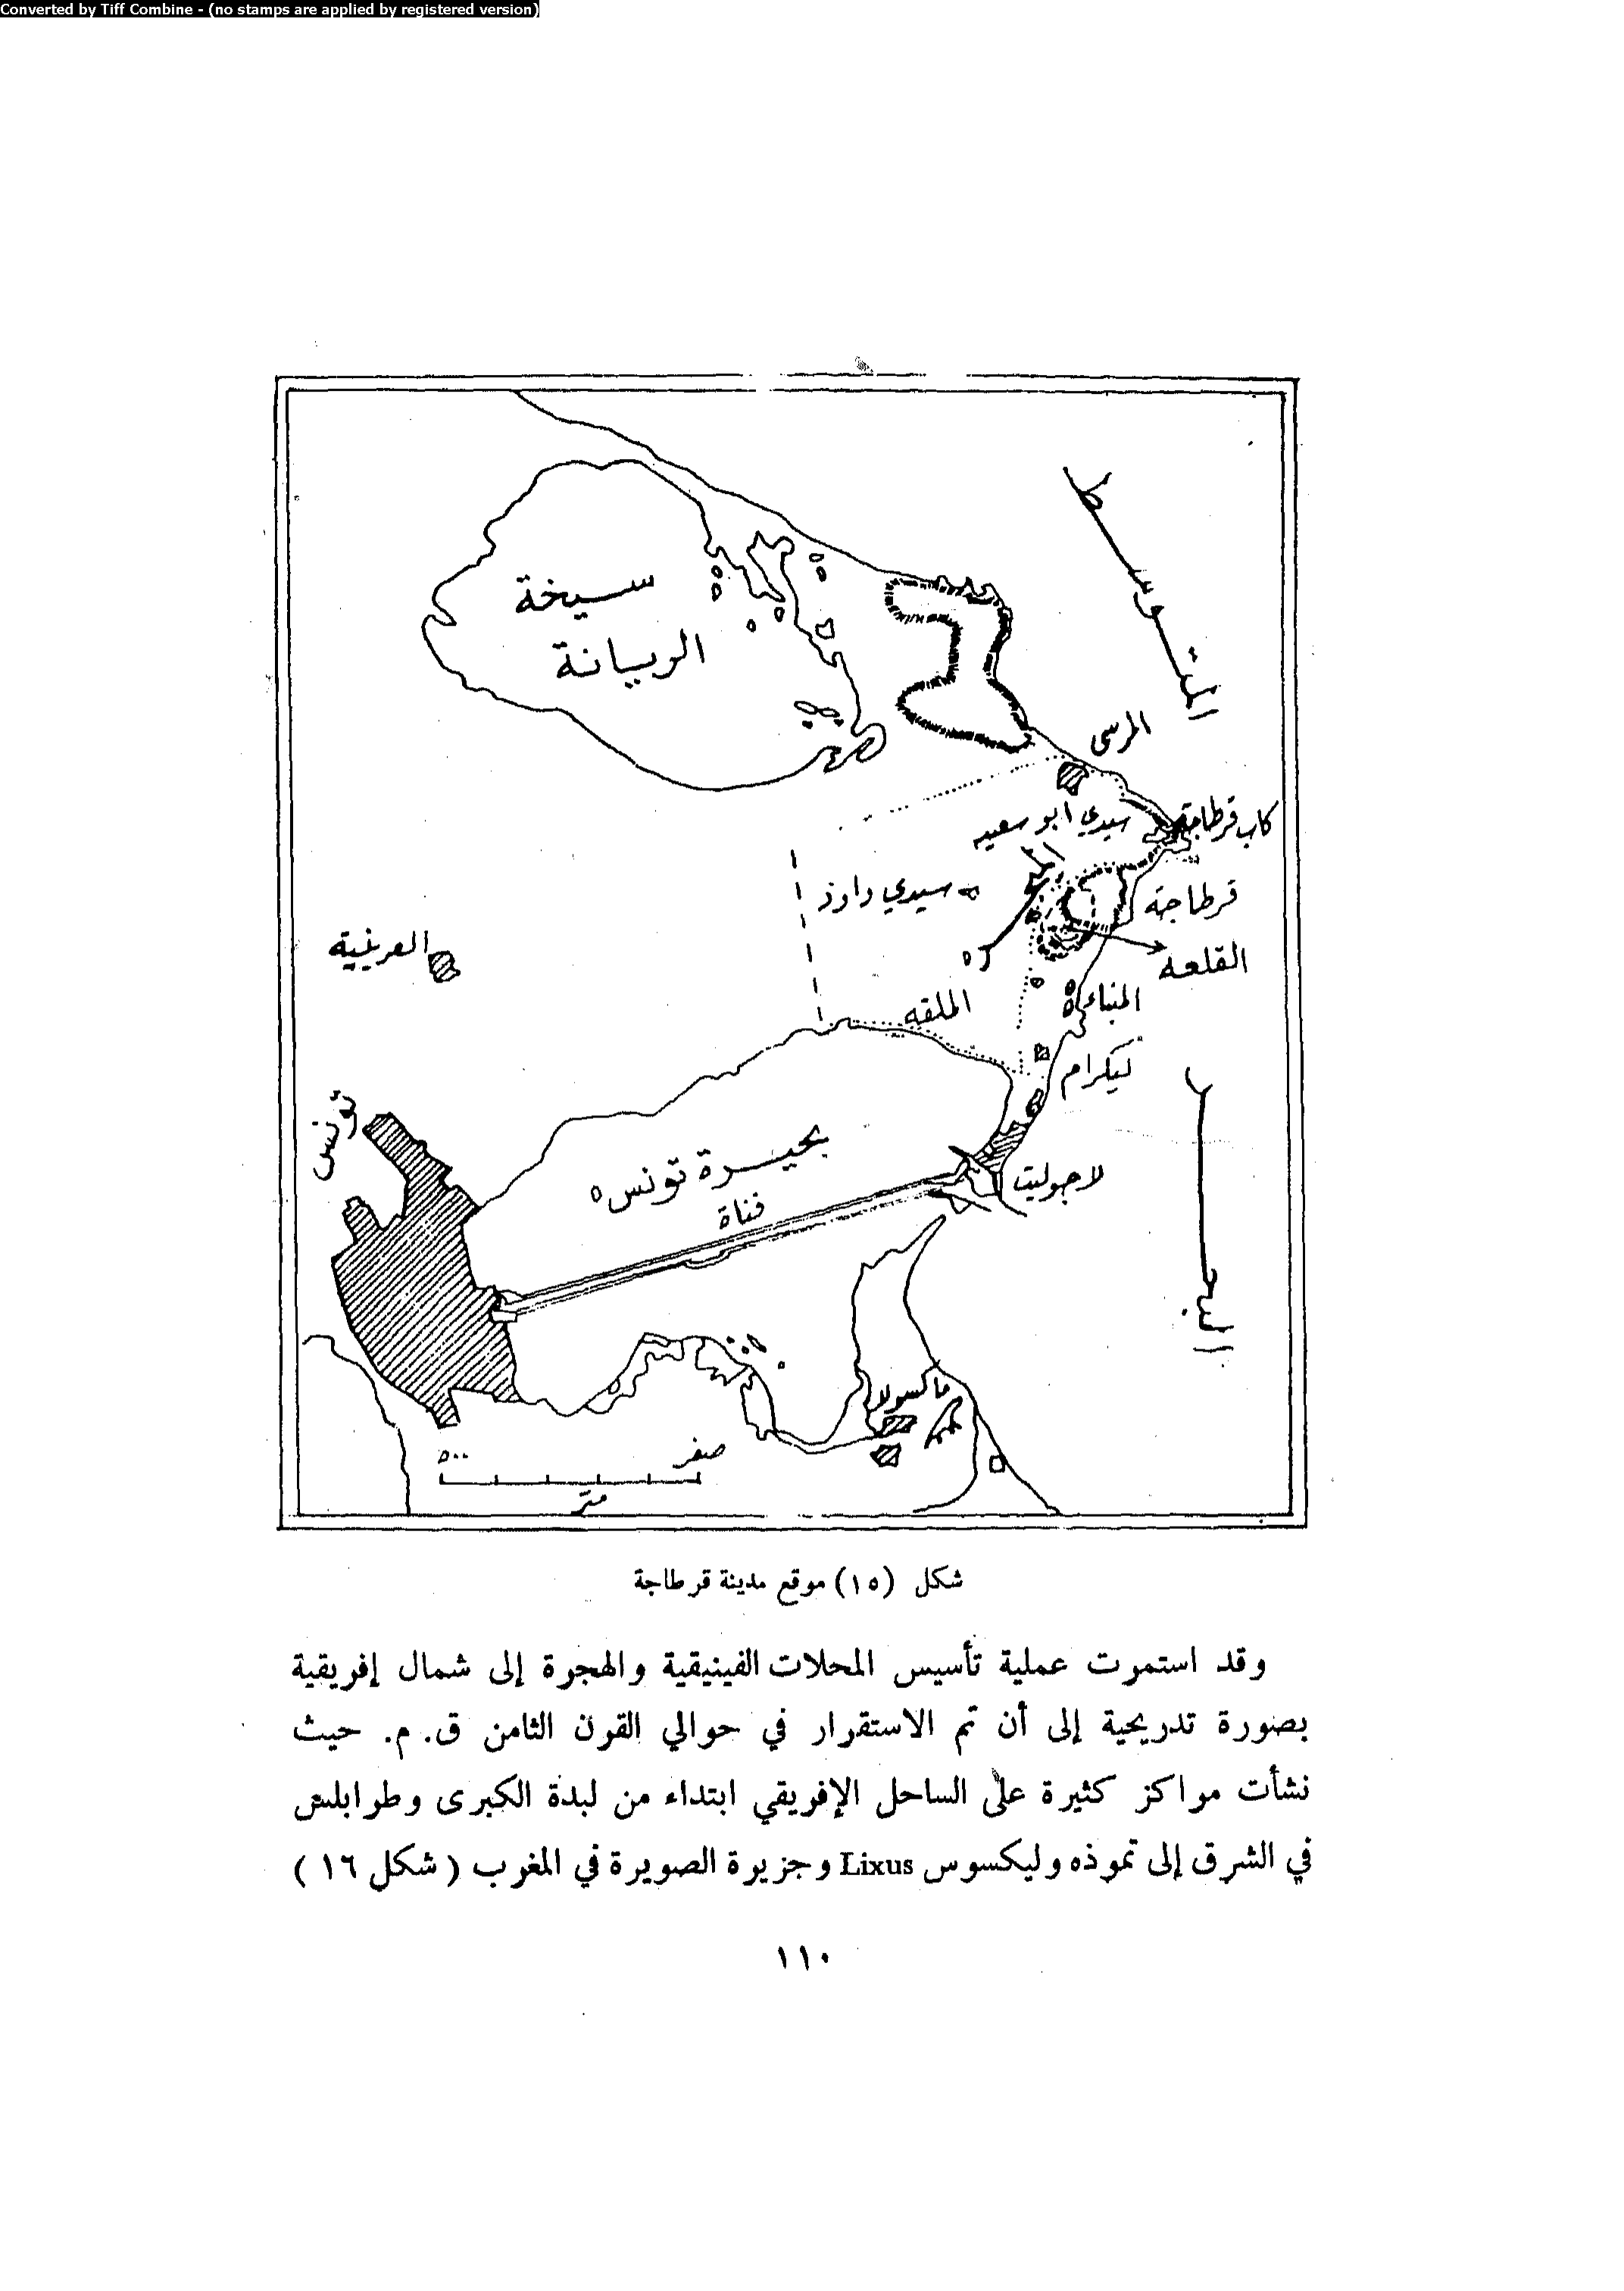 Converted by Tiff Combine - (no stamps are applied by registered version)
سيخة
الريانة
المتوسط
المرسى
سيدي ابو سعيد
كاب قرطاجة
سيدي داود
قرطاجة
القلعه
المرج
العرينية
الملقه
الميناء
ليكرام
تونس
بحيرة تونس
قناة
لاجوليت
البحر
ماكسولا
صفر
٥٠٠
متر
شكل (١٥) موقع مدينة قرطاجة
وقد استمرت عملية تأسيس المحلات الفينيقية والهجرة إلى شمال إفريقية
بصورة تدريجية إلى أن تم الاستقرار في حوالي القرن الثامن ق. م. حيث
نشأت مراكز كثيرة على الساحل الإفريقي ابتداء من لبدة الكبرى وطرابلس
في الشرق إلى تموذه وليكسوس Lixus وجزيرة الصويرة في المغرب ( شكل ١٦ )
١١٠